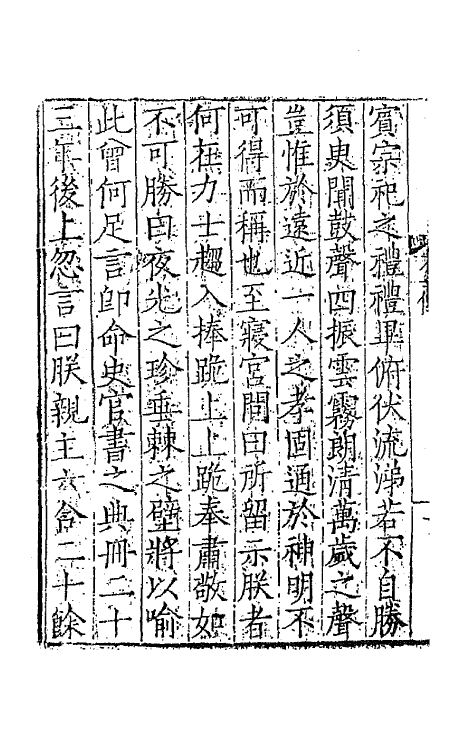 賓宗祀之禮禮畢俯伏流涕若不自勝
須臾聞鼓聲四振雲霧朗清萬歲之聲
豈惟於遠近一人之孝固通於神明不
可得而稱也至寢宮問曰所留示朕者
何在力士趨入捧跪上上跪奉肅敬如
不可勝曰夜光之珍垂棘之璧將以喻
此曾何足言即命史官書之典冊二十
三年後上忽言曰朕親主六合二十餘